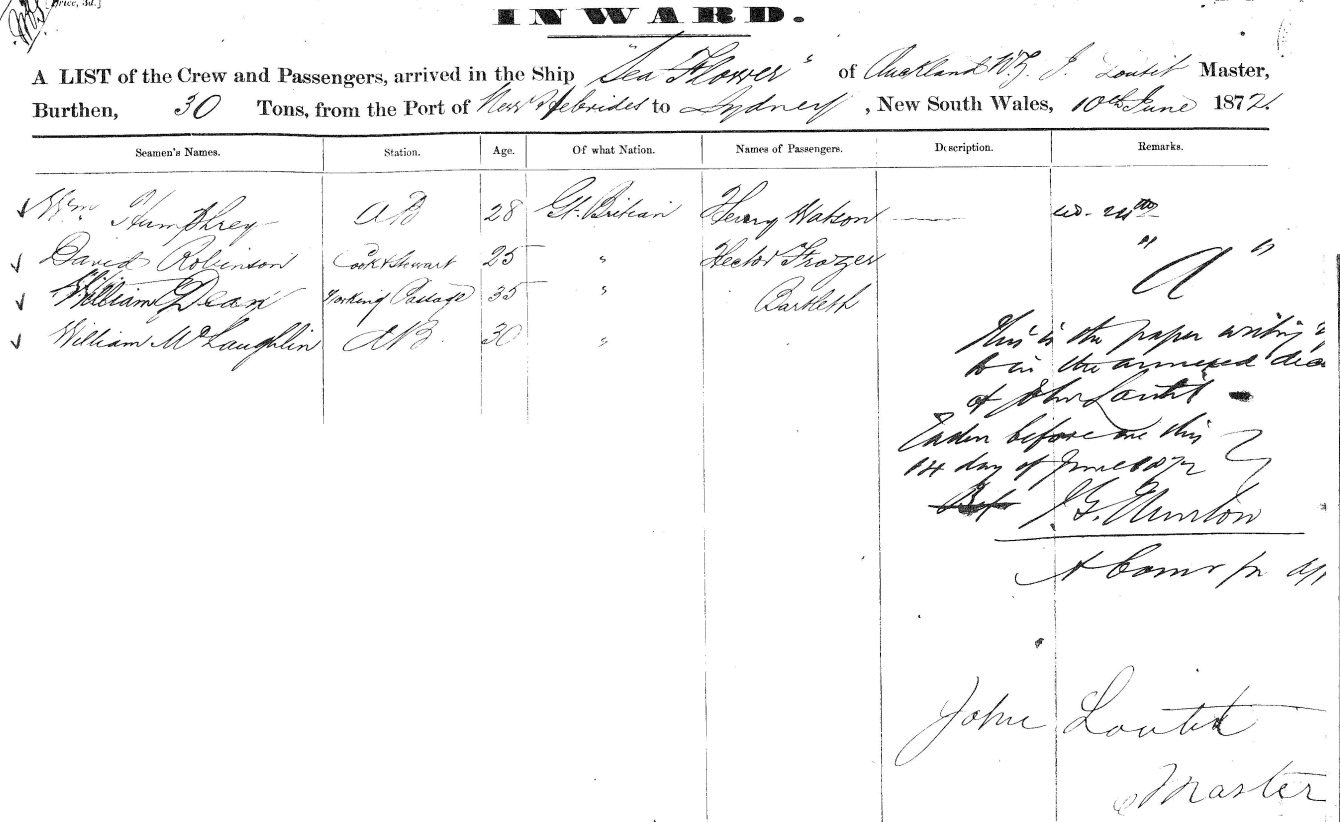 [Price, 3d.]
INWARD.
A LIST of the Crew and Passengers, arrived in the Ship "Sea Flower" of Auckland N.Z. J. Loutit Master,
Burthen, 30 Tons, from the Port of New Hebrides to Sydney, New South Wales, 10th June 1872.
Seamen's Names. Station. Age. Of what Nation. Names of Passengers. Description. Remarks.
Wm Humphrey AB 28 Gt. Britian Henry Watson
David Robinson Cook & Stewart 25 " Hector Frazer
William Dean Working Passage 35 " Bartleth
William McLaughlin AB 30 "
"A"
This is the paper writing
to in the annexed
of John Loutit
Taken before me this
14 day of June 1872
J.G.
A Comr for
John Loutit
Master